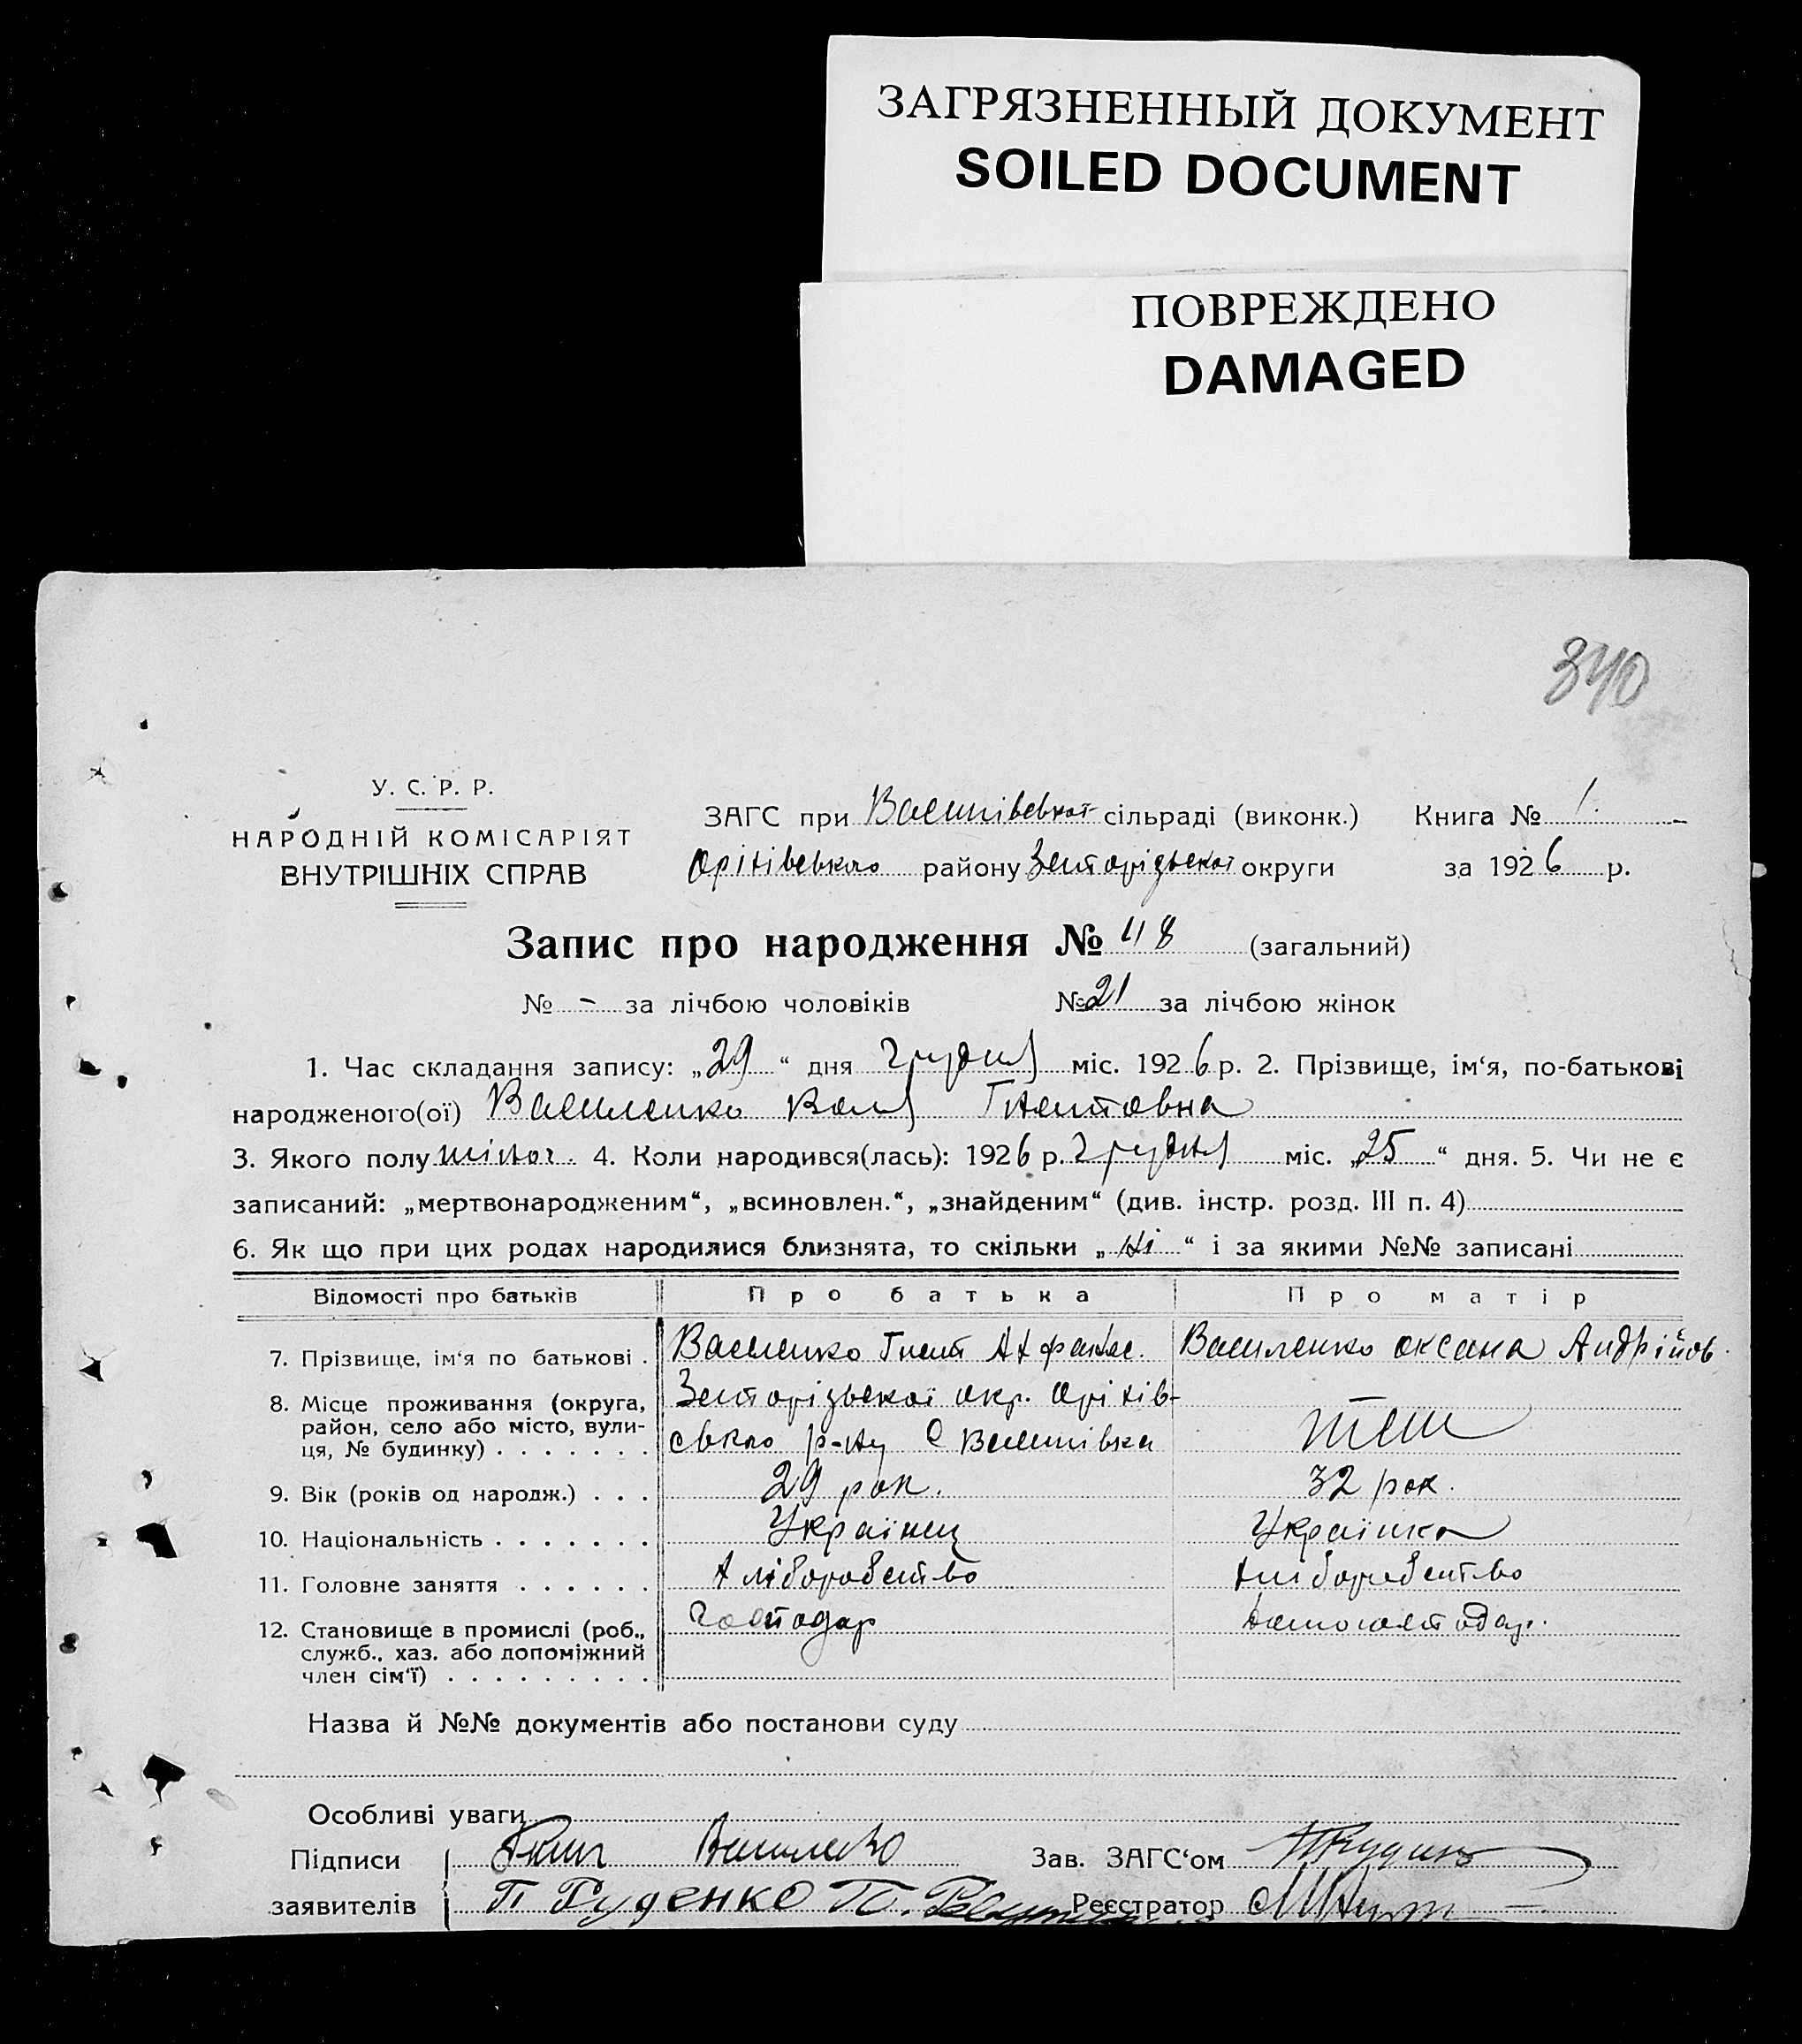 ЗАГРЯЗНЕННЫЙ ДОКУМЕНТ
SOILED DOCUMENT
ПОВРЕЖДЕНО
DAMAGED
340
У. С. Р. Р.
НАРОДНІЙ КОМІСАРІЯТ
ВНУТРІШНІХ СПРАВ
ЗАГС при сільраді (виконк.) Книга № 1.
Оріхівського району Запорізької округи за 1926 р.
Запис про народження № 48 (загальний)
№ - за лічбою чоловіків № 21 за лічбою жінок
1. Час складання запису: „29“ дня грудня міс. 1926 р. 2. Прізвище, ім‘я, по-батькові
народженого(ої) Василенко Валя Гнатовна
3. Якого полу жіноч. 4. Коли народився(лась): 1926 р. грудня міс. „25“ дня. 5. Чи не є
записаний: „мертвонародженим“, „всиновлен.“, „знайденим“ (див. інстр. розд. III п. 4)
6. Як що при цих родах народилися близнята, то скільки „ні“ і за якими №№ записані
Відомості про батьків Про батька Про матір
7. Прізвище, ім‘я по батькові . Василенко Гнат Василенко Оксана Андрійов.
8. Місце проживання (округа, район, село або місто, вулиця, № будинку) . . . . . . . Запорізької окр. Оріхів-
ського р-ну с
9. Вік (років од народж.) . . . 29 рок. 32 рок.
10. Національність . . . . . . . Українец Українка
11. Головне заняття . . . . . . хліборобство хліборобство
12. Становище в промислі (роб., служб., хаз. або допоміжний член сім‘ї) . . . . . . . . . господар домогосподар.
Назва й №№ документів або постанови суду
Особливі уваги
Підписи Василенко Зав. ЗАГС‘ом
заявителів П Руденко Реєстратор